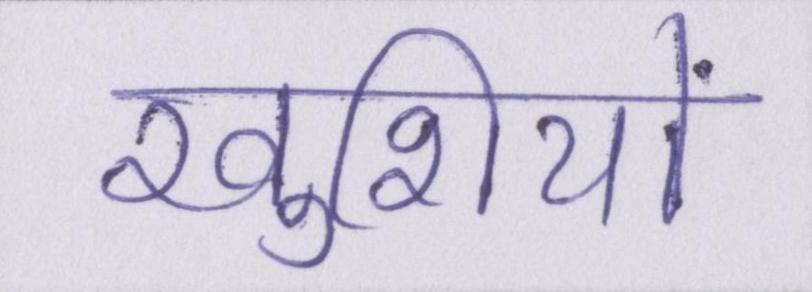 खुशियों